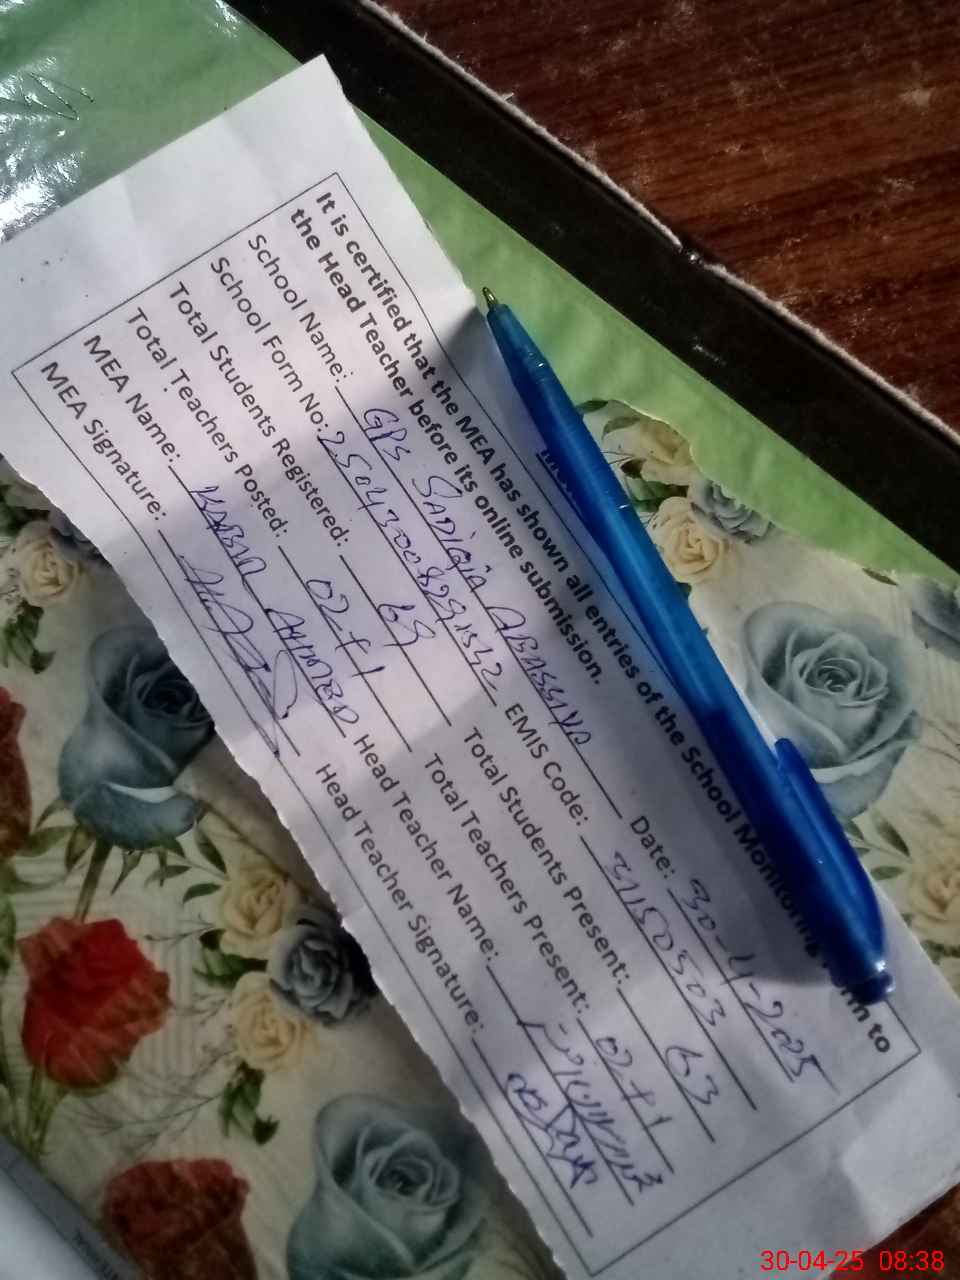 It is certified that the MEA has shown all entries of the School Monitoring Form to
the Head Teacher before its online submission.
School Name: GPS SADIQIA ABASSIYA Date: 30-4-2025
School Form No: EMIS Code: 31150503
Total Students Registered: 69 Total Students Present: 63
Total Teachers Posted: 02+1 Total Teachers Present: 02+1
MEA Name: AHMED Head Teacher Name:
MEA Signature: Head Teacher Signature:
30-04-25 08:38